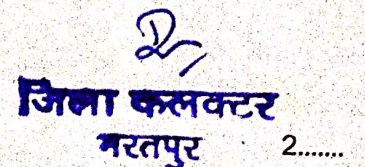 जिला कलक्टर
भरतपुर 2.......